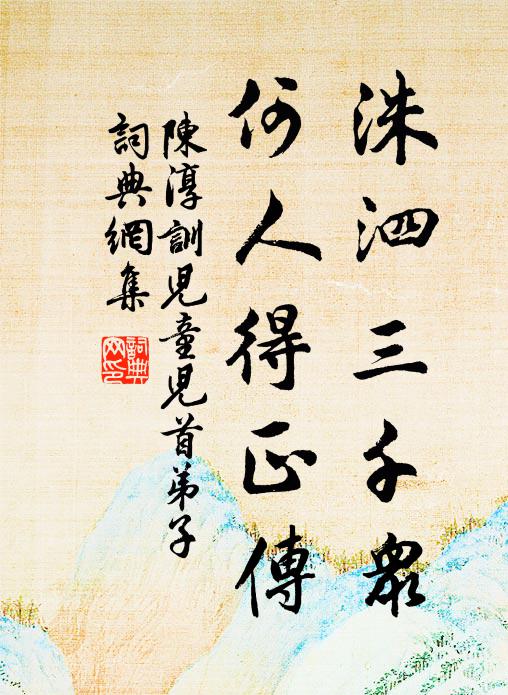 洙泗三千眾
何人得正傳
陳淳訓兒童兒首弟子
詞典網集
詞典網印